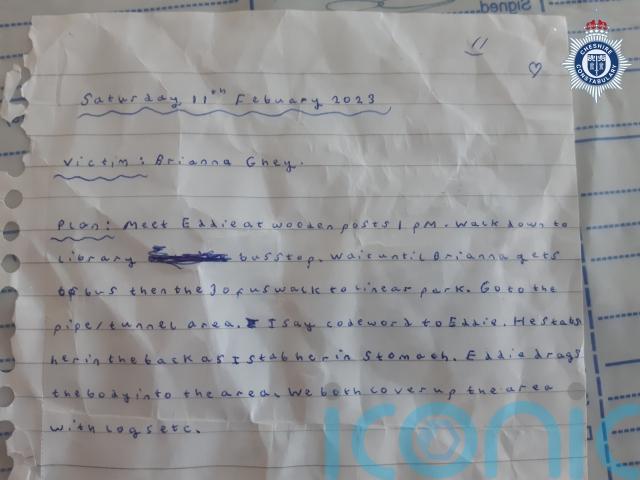 Signed
CHESHIRE
CONSTABULARY
Saturday 11th Febuary 2023
Victim: Brianna Ghey.
Plan: Meet Eddie at wooden posts 1 pm. Walk down to
library bus stop. Wait until Brianna gets
off bus then the 3 of us walk to linear park. Go to the
pipe/tunnel area. I say codeword to Eddie. He stabs
her in the back as I stab her in stomach. Eddie drags
the body into the area. We both cover up the area
with logs etc.
iconic